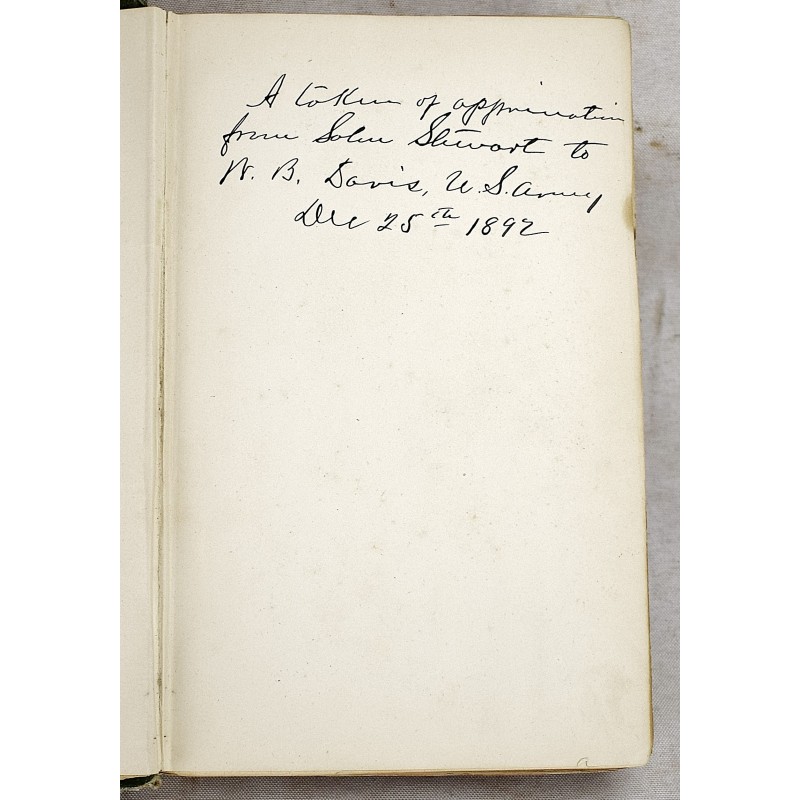 A token of appreciation
from John Stewart to
W. B. Davis, U.S. Army
Dec 25th 1892